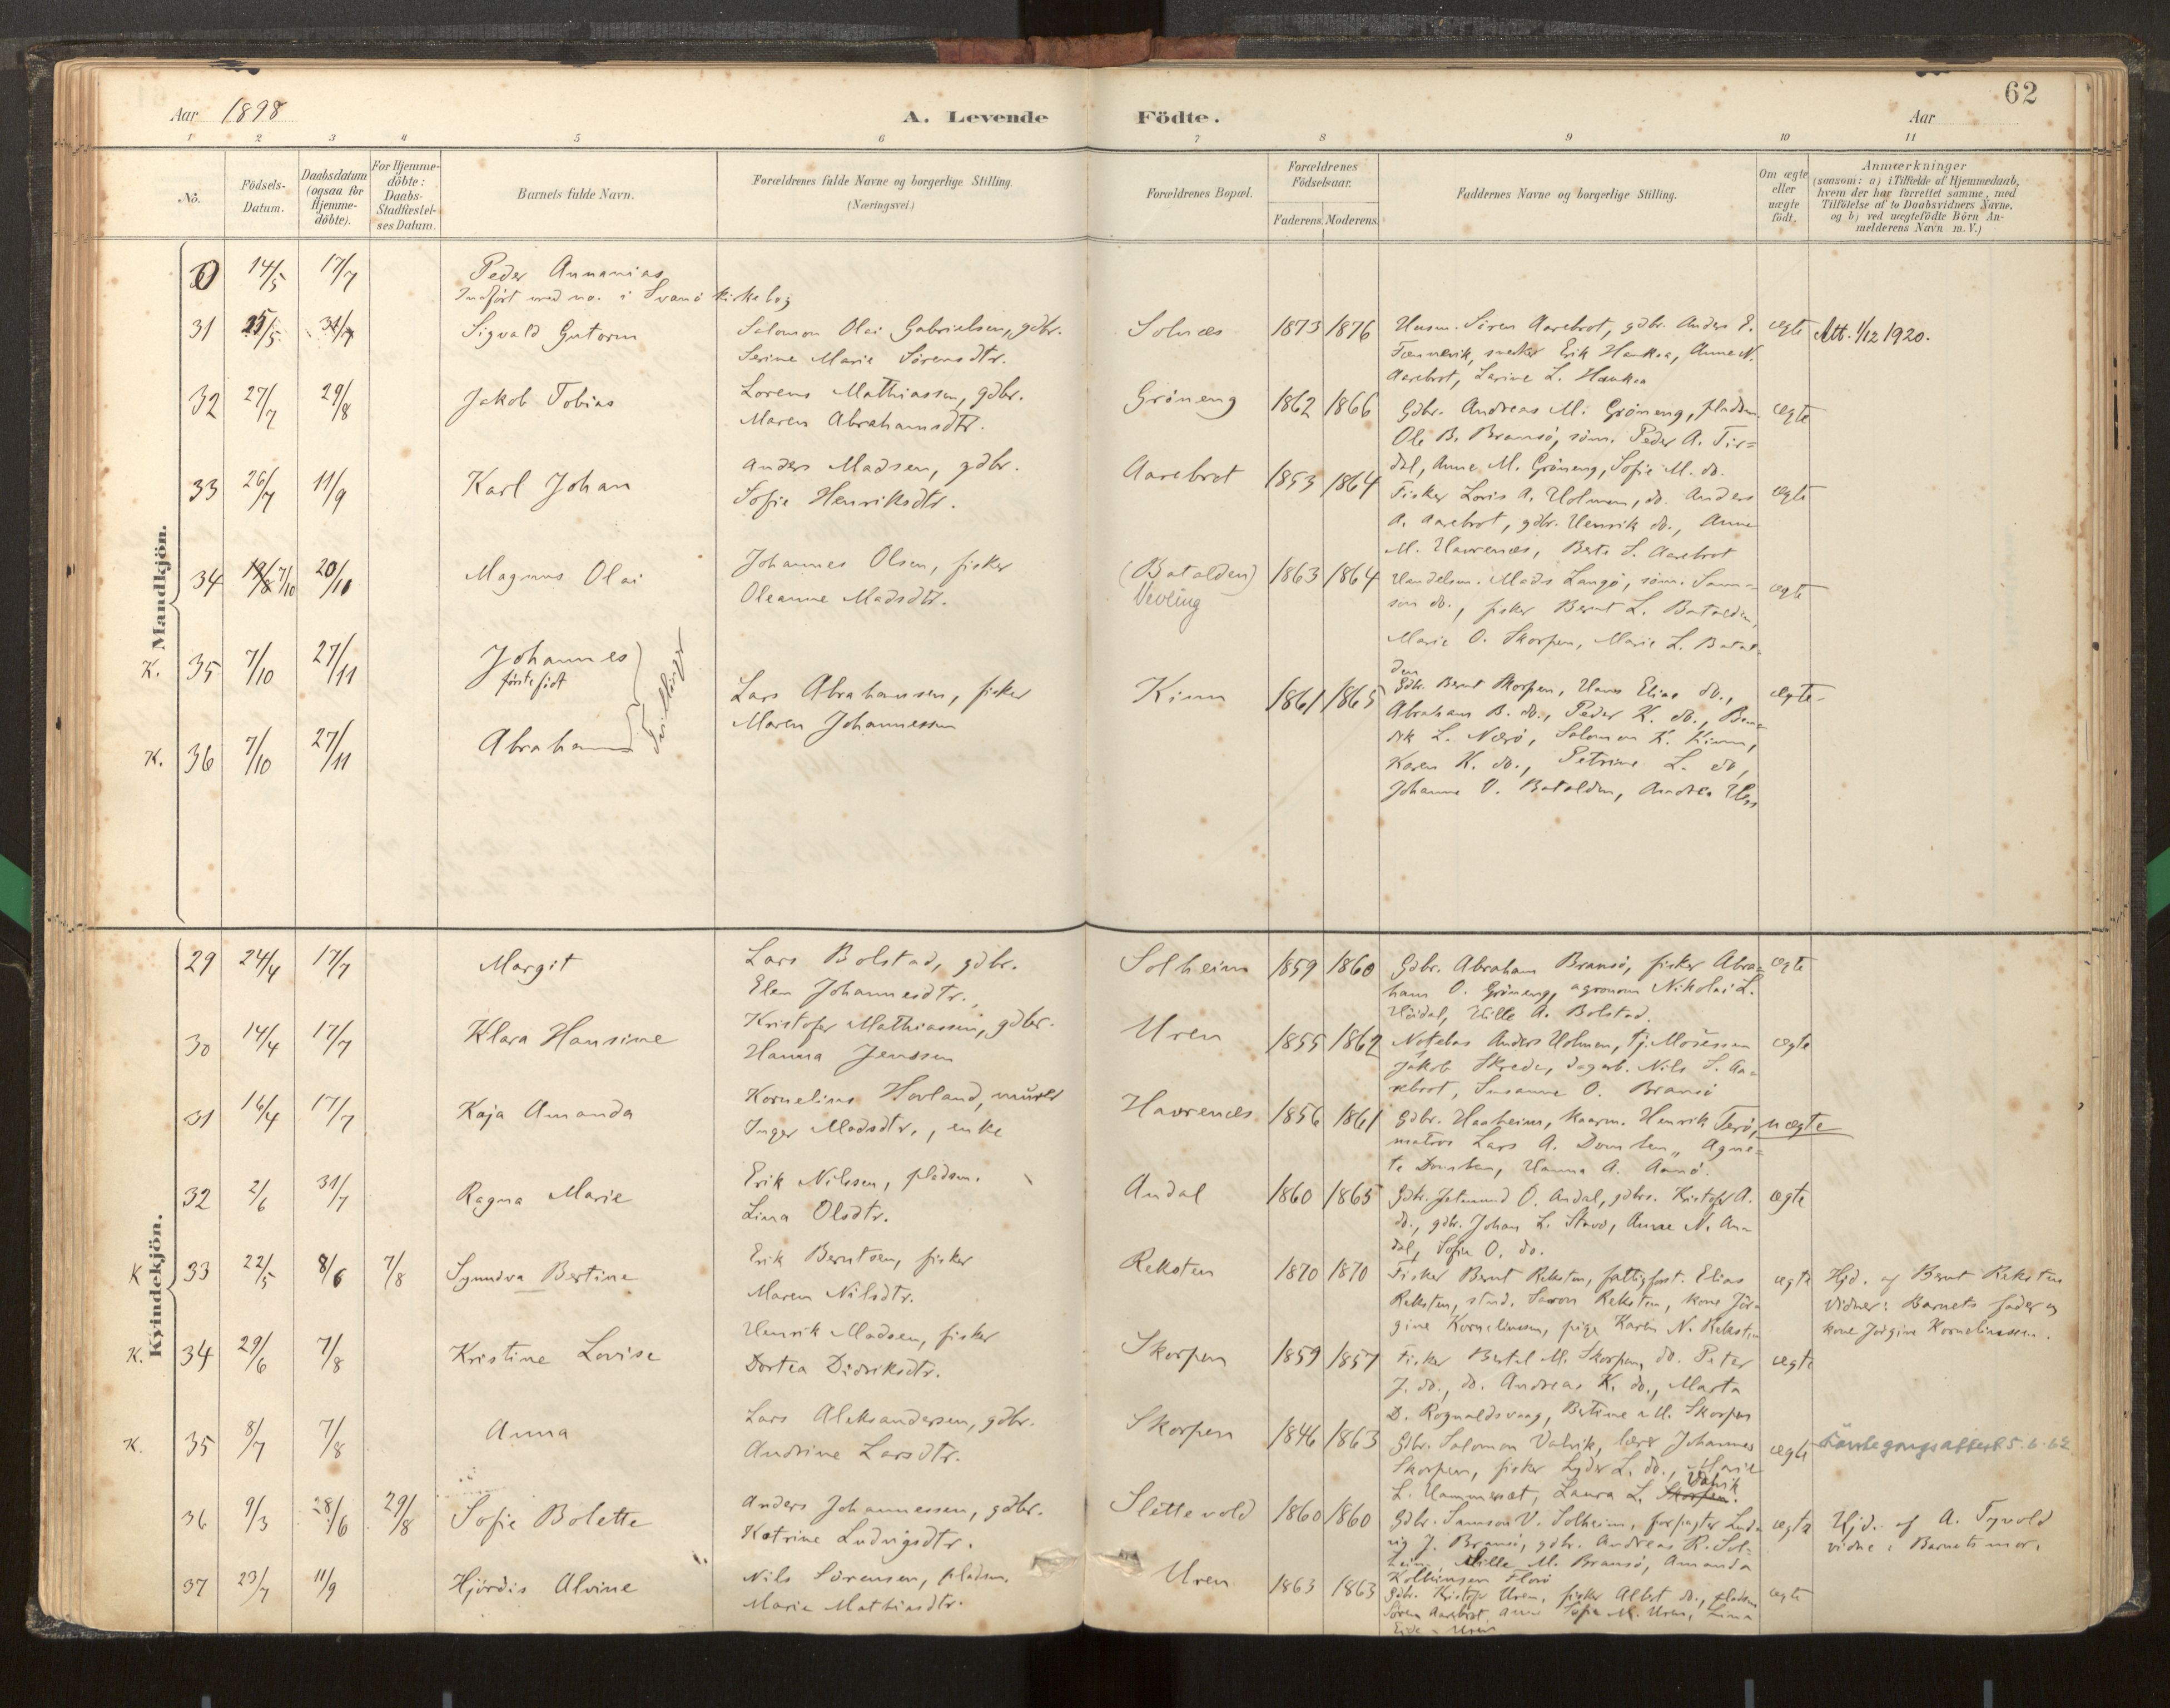 62
Aar 1898
A. Levende Födte.
Aar
1 2 3 4 5 6 7 8 9 10 11
No.
Födsels-Datum.
Daabsdatum (ogsaa for Hjemme-döbte).
For Hjemme-döbte: Daabs-Stadfæstel-ses Datum.
Barnets fulde Navn.
Forældrenes fulde Navne og borgerlige Stilling. (Næringsvei.)
Forældrenes Bopæl.
Forældrenes Födselsaar.
Faderens. Moderens.
Faddernes Navne og borgerlige Stilling.
Om ægte eller uægte födt.
Anmærkninger
(saasom: a) i Tilfælde af Hjemmedaab, hvem der har forrettet samme, med Tilföielse af to Daabsvidners Navne, og b) ved uægtefödte Börn An-melderens Navn m. V.)
Mandkjön.
0 14/5 17/7 Peder Annanias
Indført med no. i Svanø kirkebog
31 25/5 31/7 Sigvald Gutorm
Salomon Olai Gabrielsen, gdbr.
Serine Marie Sørensdtr.
Solnæs 1873 1876
Husm. Søren Aarebrot, gdbr. Anders E.
snedker Erik Haukaa, Anne N.
Aarebrot, Larine L. Haukaa
ægte Att. 1/12 1920.
32 27/7 29/8 Jakob Tobias
Lorens Mathiassen, gdbr.
Maren Abrahamsdtr.
Grøneng 1862 1866
Gdbr. Andreas M. Grøneng, pladsm.
Ole B. Bransø, søm. Peder A. Tir=
dal, Anne M. Grøneng, Sofie M. do.
ægte
33 26/7 11/9 Karl Johan
Anders Madsen, gdbr.
Sofie Henriksdtr.
Aarebrot 1853 1864
Fisker Loris A. Holmen, do. Anders
A. Aarebrot, gdbr. Henrik do., Anne
M. Havrenæs, Berte S. Aarebrot
ægte
34 7/10 20/11 Magnus Olai
Johannes Olsen, fisker
Oleanne Madsdtr.
(Batalden)
Vevling
1863 1864
Handelsm. Mads Langø, søm. Sam=
son do., fisker Bernt L. Batalden,
Marie O. Skorpen, Marie L. Batal=
den
ægte
K. 35 7/10 27/11 Johannes
første født
Tvillinger
Lars Abrahamsen, fisker
Maren Johannessen
Kinn 1861 1865
Gdbr. Bernt Skorpen, Hans Elias do.,
Abraham B. do., Peder K. do., Ben=
dik L. Nærø, Salomon K. Kinn,
Karen K. do., Petrine L. do,
Johanne V. Batalden, Andrea
ægte
K. 36 7/10 27/11 Abraham
Kvindekjön.
29 24/4 17/7 Margit
Lars Bolstad, gdbr.
Elen Johannesdtr.
Solheim 1859 1860
Gdbr. Abraham Bransø, fisker Abra=
ham O. Grøneng, agronom Nikolai L.
Høidal, Hille A. Bolstad.
ægte
30 14/4 17/7 Klara Hansine
Kristofer Mathiassen, gdbr.
Hanna Jenssen
Uren 1855 1862
Notebas Anders Holmen,
Jakob Skrede, dagarb. Nils S. Aa=
rebrot, Susanne O. Bransø
ægte
31 16/4 17/7 Kaja Amanda
Kornelius Hovland, murer
Inger Madsdtr., enke
Havrenæs 1856 1861
Gdbr. Haaheim, Henrik Terø,
matros Lars A. Domben, Agne=
te Domben, Hanna A.
uægte
32 2/6 31/7 Ragna Marie
Erik Nilssen, pladsm.
Lina Olsdtr.
Andal 1860 1865
Gdbr. Jetmund O. Andal, gdbrs. Kristofer A.
do., gdbr. Johan L. Stavø, Anne N. An=
dal, Sofie O. do.
ægte
K 33 22/5 8/6 7/8 Synneva Bertine
Erik Berntsen, fisker
Maren Nilsdtr.
Reksten 1870 1870
Fisker Bernt Reksten, fattigforst. Elias
Reksten, stud. Samson Reksten, kone Jør=
gine Korneliussen, pige Karen N. Reksten
ægte
Hjd. af Bernt Reksten
Vidner: Barnets fader og
kone Jørgine Korneliussen.
K. 34 29/6 7/8 Kristine Lovise
Henrik Madsen, fisker
Dortea Didriksdtr.
Skorpen 1859 1857
Fisker Bertel M. Skorpen, do. Peter
J. do., do. Andreas K. do., Marta
D. Rognaldsvaag, Bertine M. Skorpen
ægte
K. 35 8/7 7/8 Anna
Lars Aleksandersen, gdbr.
Andrine Larsdtr.
Skorpen 1846 1863
Gdbr. Salomon Valvik, lærer Johannes
Skorpen, fisker Lyder L. do., Marie
L. Hammersæt, Laura L. Skorpen. Valvik
ægte
36 9/3 28/6 29/8 Sofie Bolette
Anders Johannessen, gdbr.
Katrine Ludvigsdtr.
Slettevold 1860 1860
Gdbr. Samson V. Solheim, forpagter Lud=
vig J. Bransø, gdbr. Andreas R. Sol=
heim, Mille M. Bransø, Amanda
Florø
ægte
Hjd. af A. Tyvold
vidne: Barnets mor.
37 23/7 11/9 Hjørdis Alvine
Nils Sørensen, pladsm.
Marie Mathiasdtr.
Uren 1863 1863
Gdbr. Kristofer Uren, fisker Albert do., pladsm.
Søren Aarebrot, Anne Sofie M. Uren, Lina
Uren
ægte